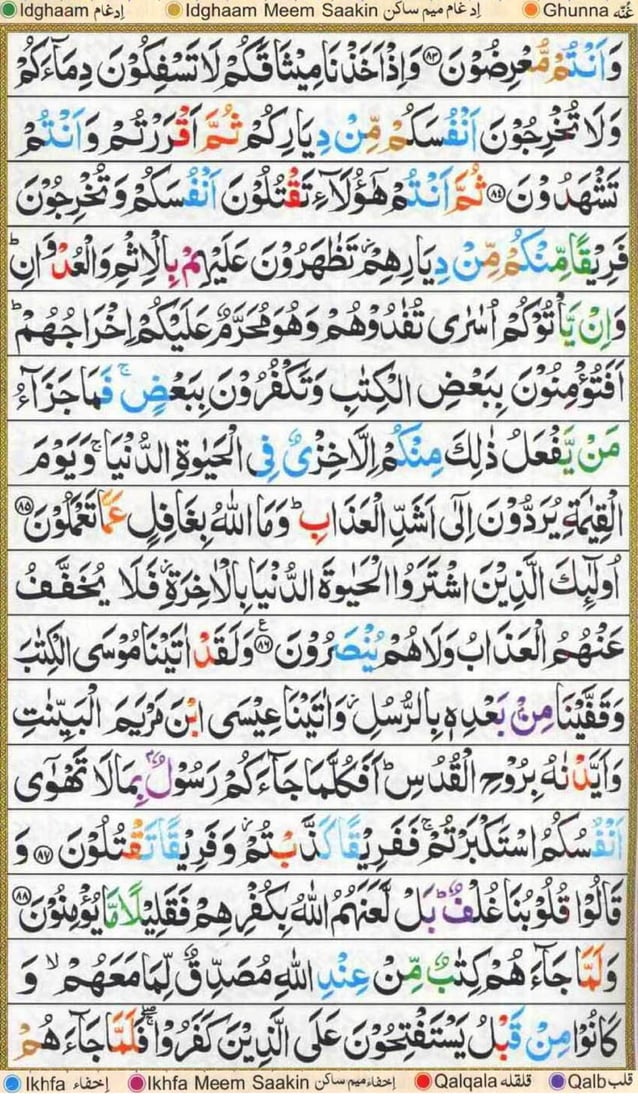 Idghaam ادغام Idghaam Meem Saakin ادغام میم ساکن Ghunna غُنّه
وَاَنْتُمْ مُّعْرِضُوْنَ ﴿۸۳﴾ وَاِذْ اَخَذْنَا مِيْثَاقَكُمْ لَا تَسْفِكُوْنَ دِمَآءَكُمْ
وَلَا تُخْرِجُوْنَ اَنْفُسَكُمْ مِّنْ دِيَارِكُمْ ثُمَّ اَقْرَرْتُمْ وَاَنْتُمْ
تَشْهَدُوْنَ ﴿۸۴﴾ ثُمَّ اَنْتُمْ هٰٓؤُلَآءِ تَقْتُلُوْنَ اَنْفُسَكُمْ وَتُخْرِجُوْنَ
فَرِيْقًا مِّنْكُمْ مِّنْ دِيَارِهِمْ تَظٰهَرُوْنَ عَلَيْهِمْ بِالْاِثْمِ وَالْعُدْوَانِ ؕ
وَاِنْ يَّاْتُوْكُمْ اُسٰرٰى تُفٰدُوْهُمْ وَهُوَ مُحَرَّمٌ عَلَيْكُمْ اِخْرَاجُهُمْ ؕ
اَفَتُؤْمِنُوْنَ بِبَعْضِ الْكِتٰبِ وَتَكْفُرُوْنَ بِبَعْضٍ ۚ فَمَا جَزَآءُ
مَنْ يَّفْعَلُ ذٰلِكَ مِنْكُمْ اِلَّا خِزْىٌ فِى الْحَيٰوةِ الدُّنْيَا ۚ وَيَوْمَ
الْقِيٰمَةِ يُرَدُّوْنَ اِلٰٓى اَشَدِّ الْعَذَابِ ؕ وَمَا اللّٰهُ بِغَافِلٍ عَمَّا تَعْمَلُوْنَ ﴿۸۵﴾
اُولٰٓئِكَ الَّذِيْنَ اشْتَرَوُا الْحَيٰوةَ الدُّنْيَا بِالْاٰخِرَةِ ۫ فَلَا يُخَفَّفُ
عَنْهُمُ الْعَذَابُ وَلَا هُمْ يُنْصَرُوْنَ ﴿۸۶﴾ وَلَقَدْ اٰتَيْنَا مُوْسَى الْكِتٰبَ
وَقَفَّيْنَا مِنْ بَعْدِهٖ بِالرُّسُلِ ۫ وَاٰتَيْنَا عِيْسَى ابْنَ مَرْيَمَ الْبَيِّنٰتِ
وَاَيَّدْنٰهُ بِرُوْحِ الْقُدُسِ ؕ اَفَكُلَّمَا جَآءَكُمْ رَسُوْلٌۢ بِمَا لَا تَهْوٰٓى
اَنْفُسُكُمُ اسْتَكْبَرْتُمْ ۚ فَفَرِيْقًا كَذَّبْتُمْ ۫ وَفَرِيْقًا تَقْتُلُوْنَ ﴿۸۷﴾ وَ
قَالُوْا قُلُوْبُنَا غُلْفٌ ؕ بَلْ لَّعَنَهُمُ اللّٰهُ بِكُفْرِهِمْ فَقَلِيْلًا مَّا يُؤْمِنُوْنَ ﴿۸۸﴾
وَلَمَّا جَآءَهُمْ كِتٰبٌ مِّنْ عِنْدِ اللّٰهِ مُصَدِّقٌ لِّمَا مَعَهُمْ ۙ وَ
كَانُوْا مِنْ قَبْلُ يَسْتَفْتِحُوْنَ عَلَى الَّذِيْنَ كَفَرُوْا ۖۚ فَلَمَّا جَآءَهُمْ
Ikhfa إخفاء Ikhfa Meem Saakin إخفاء میم ساکن Qalqala قلقله Qalb قلب